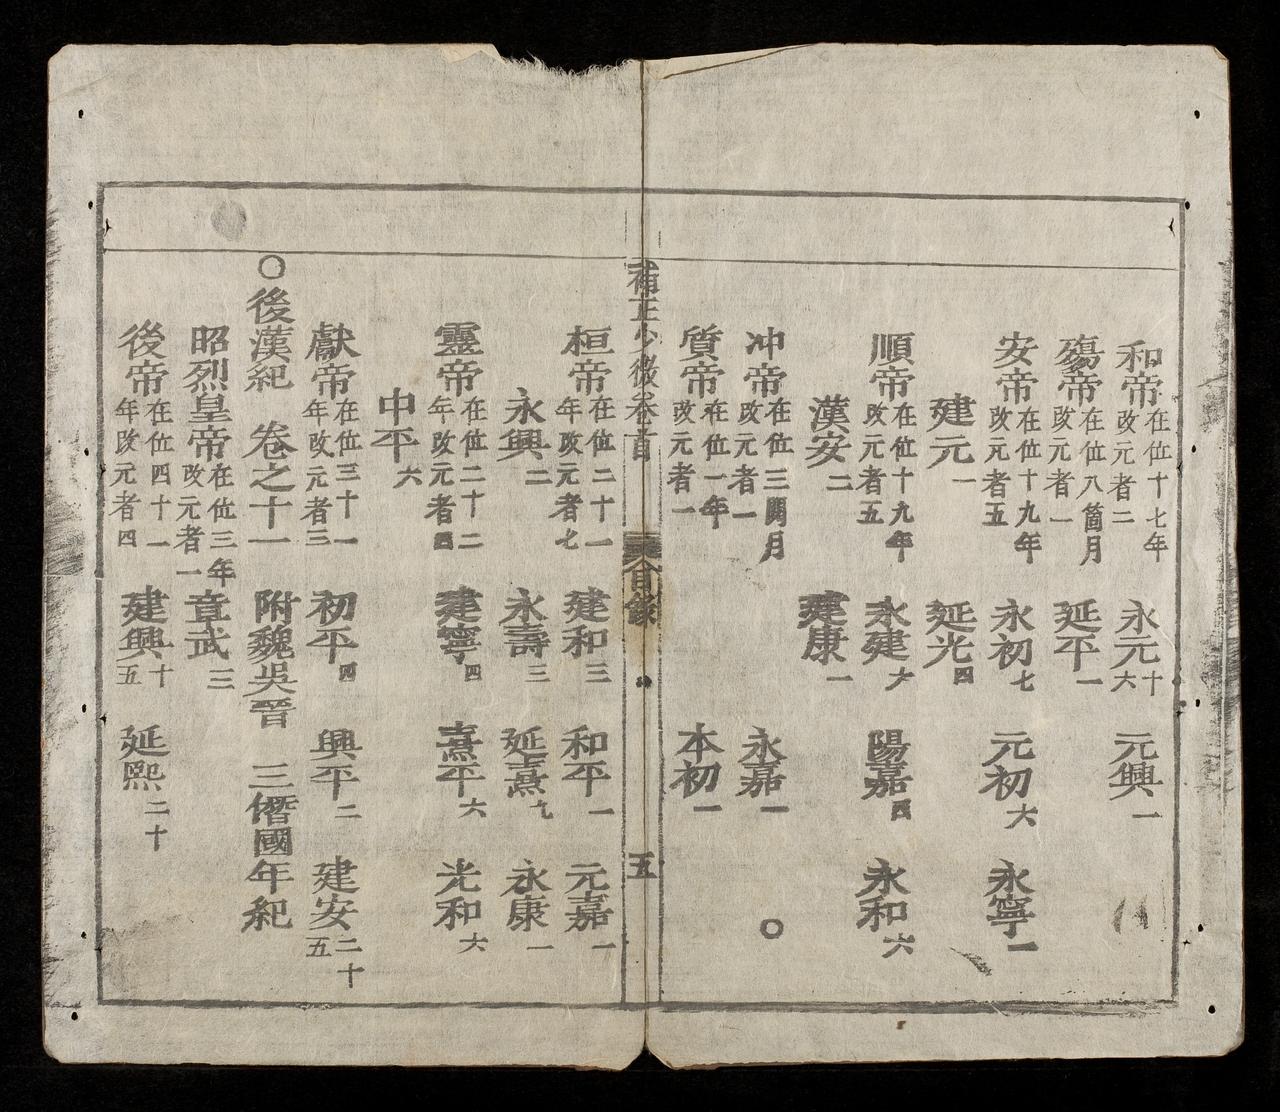 和帝 在位十七年改元者二 永元十六 元興一
殤帝 在位八箇月改元者一 延平一
安帝 在位十九年改元者五 永初七 元初六 永寧一
建元一 延光四
順帝 在位十九年改元者五 永建六 陽嘉四 永和六
漢安二 建康一
冲帝 在位三閱月改元者一 永嘉一 〇
質帝 在位一年改元者一 本初一
補正少微卷之首 目錄 五
桓帝 在位二十一年改元者七 建和三 和平一 元嘉一
永興二 永壽三 延熹九 永康一
靈帝 在位二十二年改元者四 建寧四 熹平六 光和六
中平六
獻帝 在位三十一年改元者三 初平四 興平二 建安二十五
〇後漢紀 卷之十一 附魏吳晉 三僭國年紀
昭烈皇帝 在位三年改元者一 章武三
後帝 在位四十一年改元者四 建興十五 延熙二十